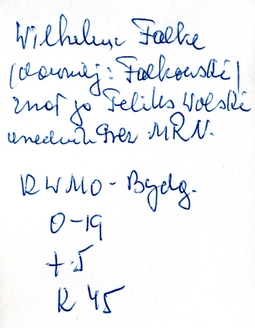 Wilhelm Falke
(dawniej: Falkowski)
znał go Feliks Wolski
Prez MRN.
KWMO - Bydg.
0-19
t-5
K 45